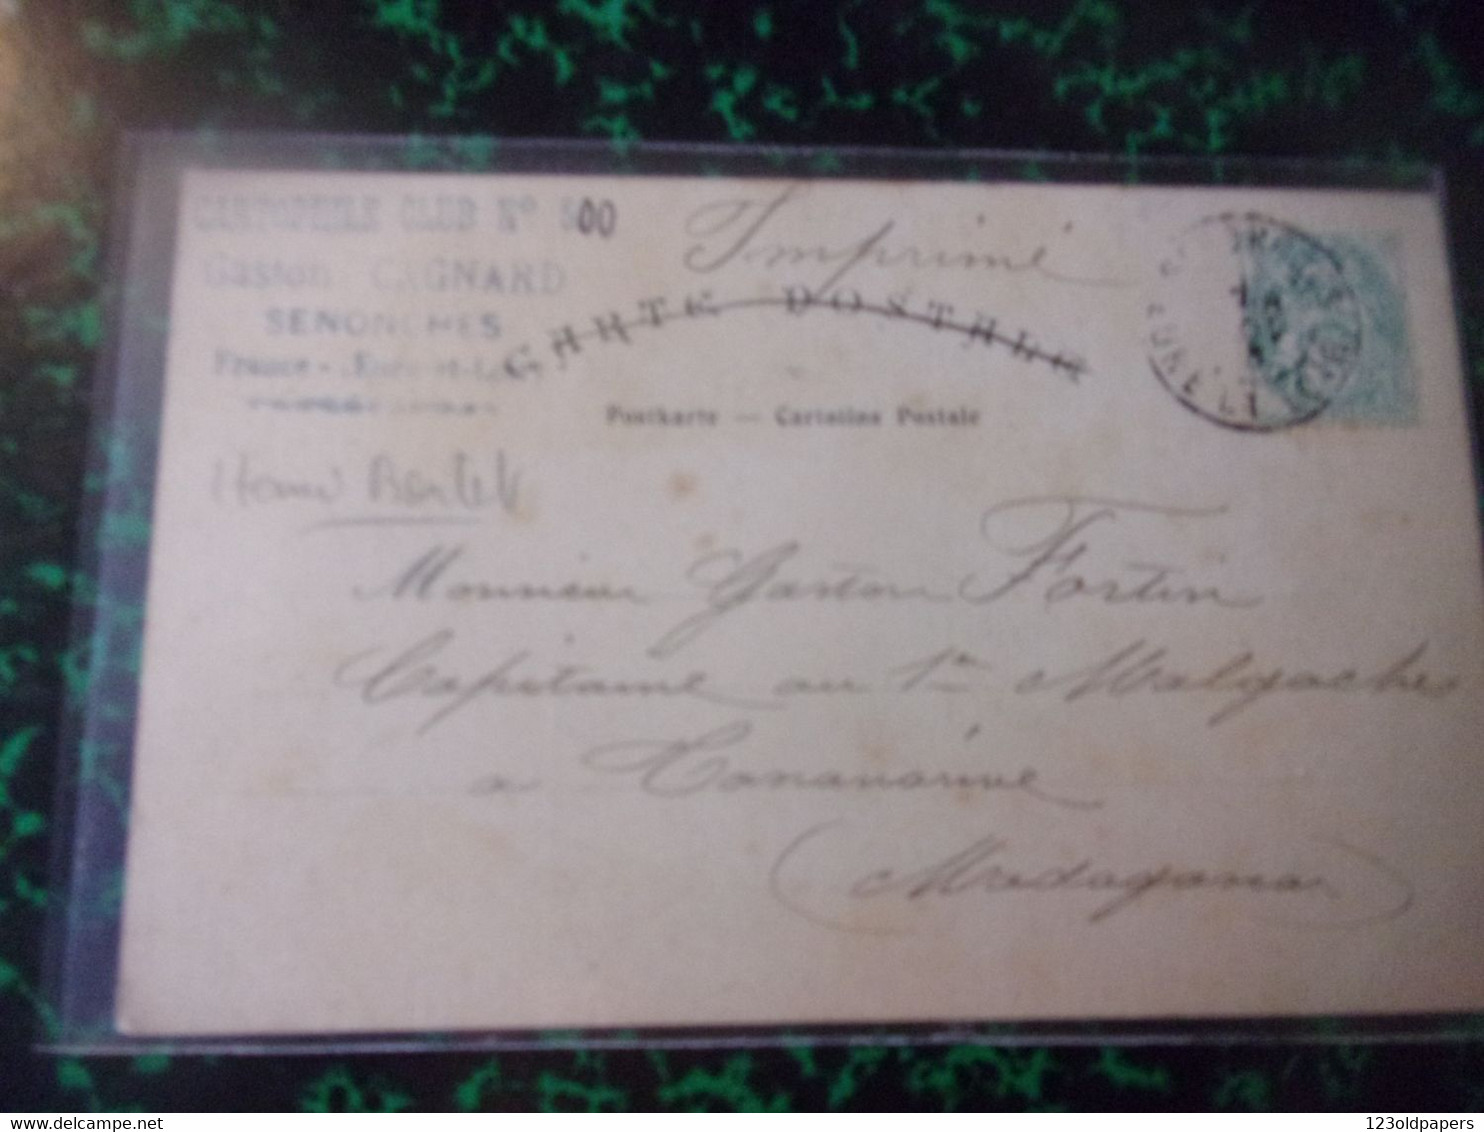 CARTOPHILE CLUB N° 500
Gaston CAGNARD
SENONCHES
France - Eure-et-Loir
Imprimé
CARTE POSTALE
Postkarte — Cartolina Postale
EURE ET
Monsieur Gaston Fortin
Capitaine au 1er Malgaches
a Tananarive
(Madagascar)
123oldpapers